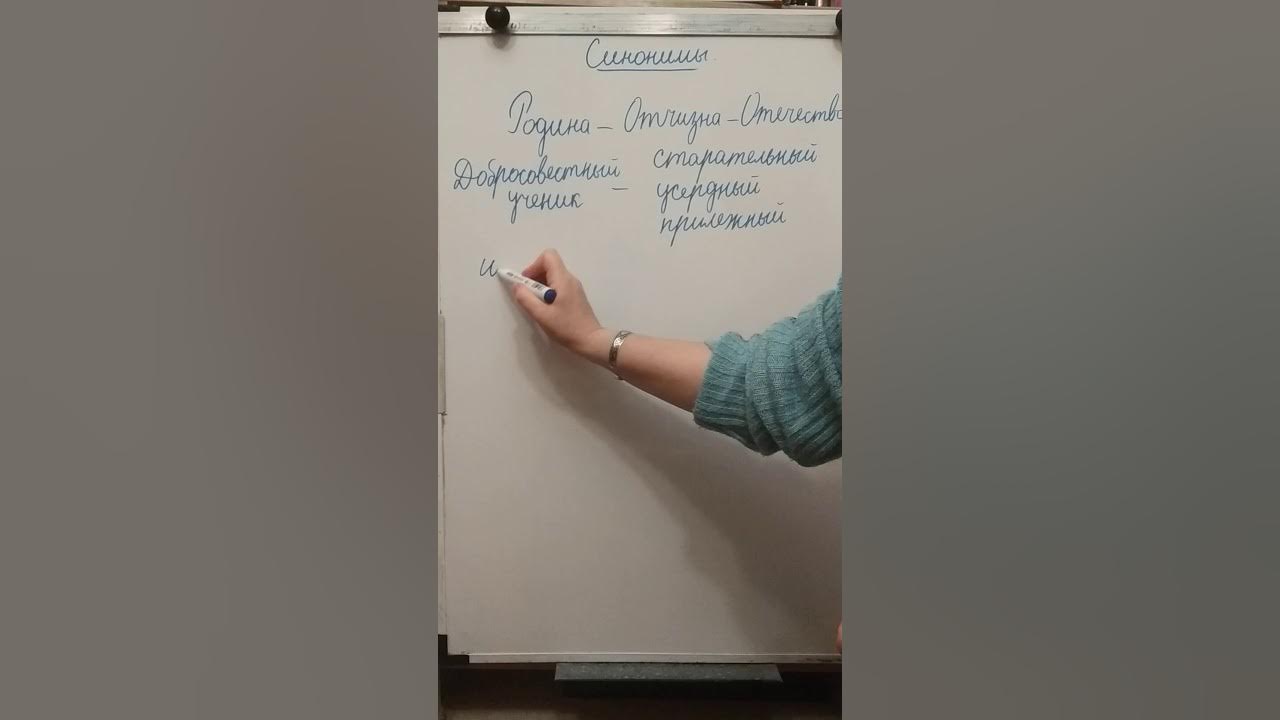 Синонимы.
Родина – Отчизна – Отечество
Добросовестный
ученик –
старательный
усердный
прилежный
и